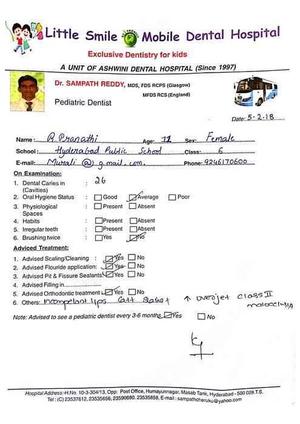 Little Smile Mobile Dental Hospital
Exclusive Dentistry for kids
A UNIT OF ASHWINI DENTAL HOSPITAL (Since 1997)
Dr. SAMPATH REDDY, MDS, FDS RCPS (Glasgow)
MFDS RCS (England)
Pediatric Dentist
Date: 5-2-18
Name: R. Pranathi Age: 11 Sex: Female
School: Hyderabad Public School Class: 6
E-mail: Murali @ g mail.com. Phone: 9246170600
On Examination:
1. Dental Caries in (Cavities) : 26
2. Oral Hygiene Status : Good Average Poor
3. Physiological Spaces : Present Absent
4. Habits : Present Absent
5. Irregular teeth : Present Absent
6. Brushing twice : Yes No
Adviced Treatment:
1. Advised Scaling/Cleaning : Yes No
2. Advised Flouride application: Yes No
3. Advised Pit & Fissure Sealants: Yes No
4. Advised Filling in
5. Advised Orthodontic treatment : Yes No
6. Others: Incompetent lips ↑ overjet class II
Note: Advised to see a pediatric dentist every 3-6 months Yes No
Hospital Address: H.No. 10-3-304/13, Opp. Post Office, Humayunnagar, Masab Tank, Hyderabad - 500 028 T.S.
Tel : (C) 23537612, 23535656, 23590680, 23535858, E-mail : sampathcheruku@yahoo.com